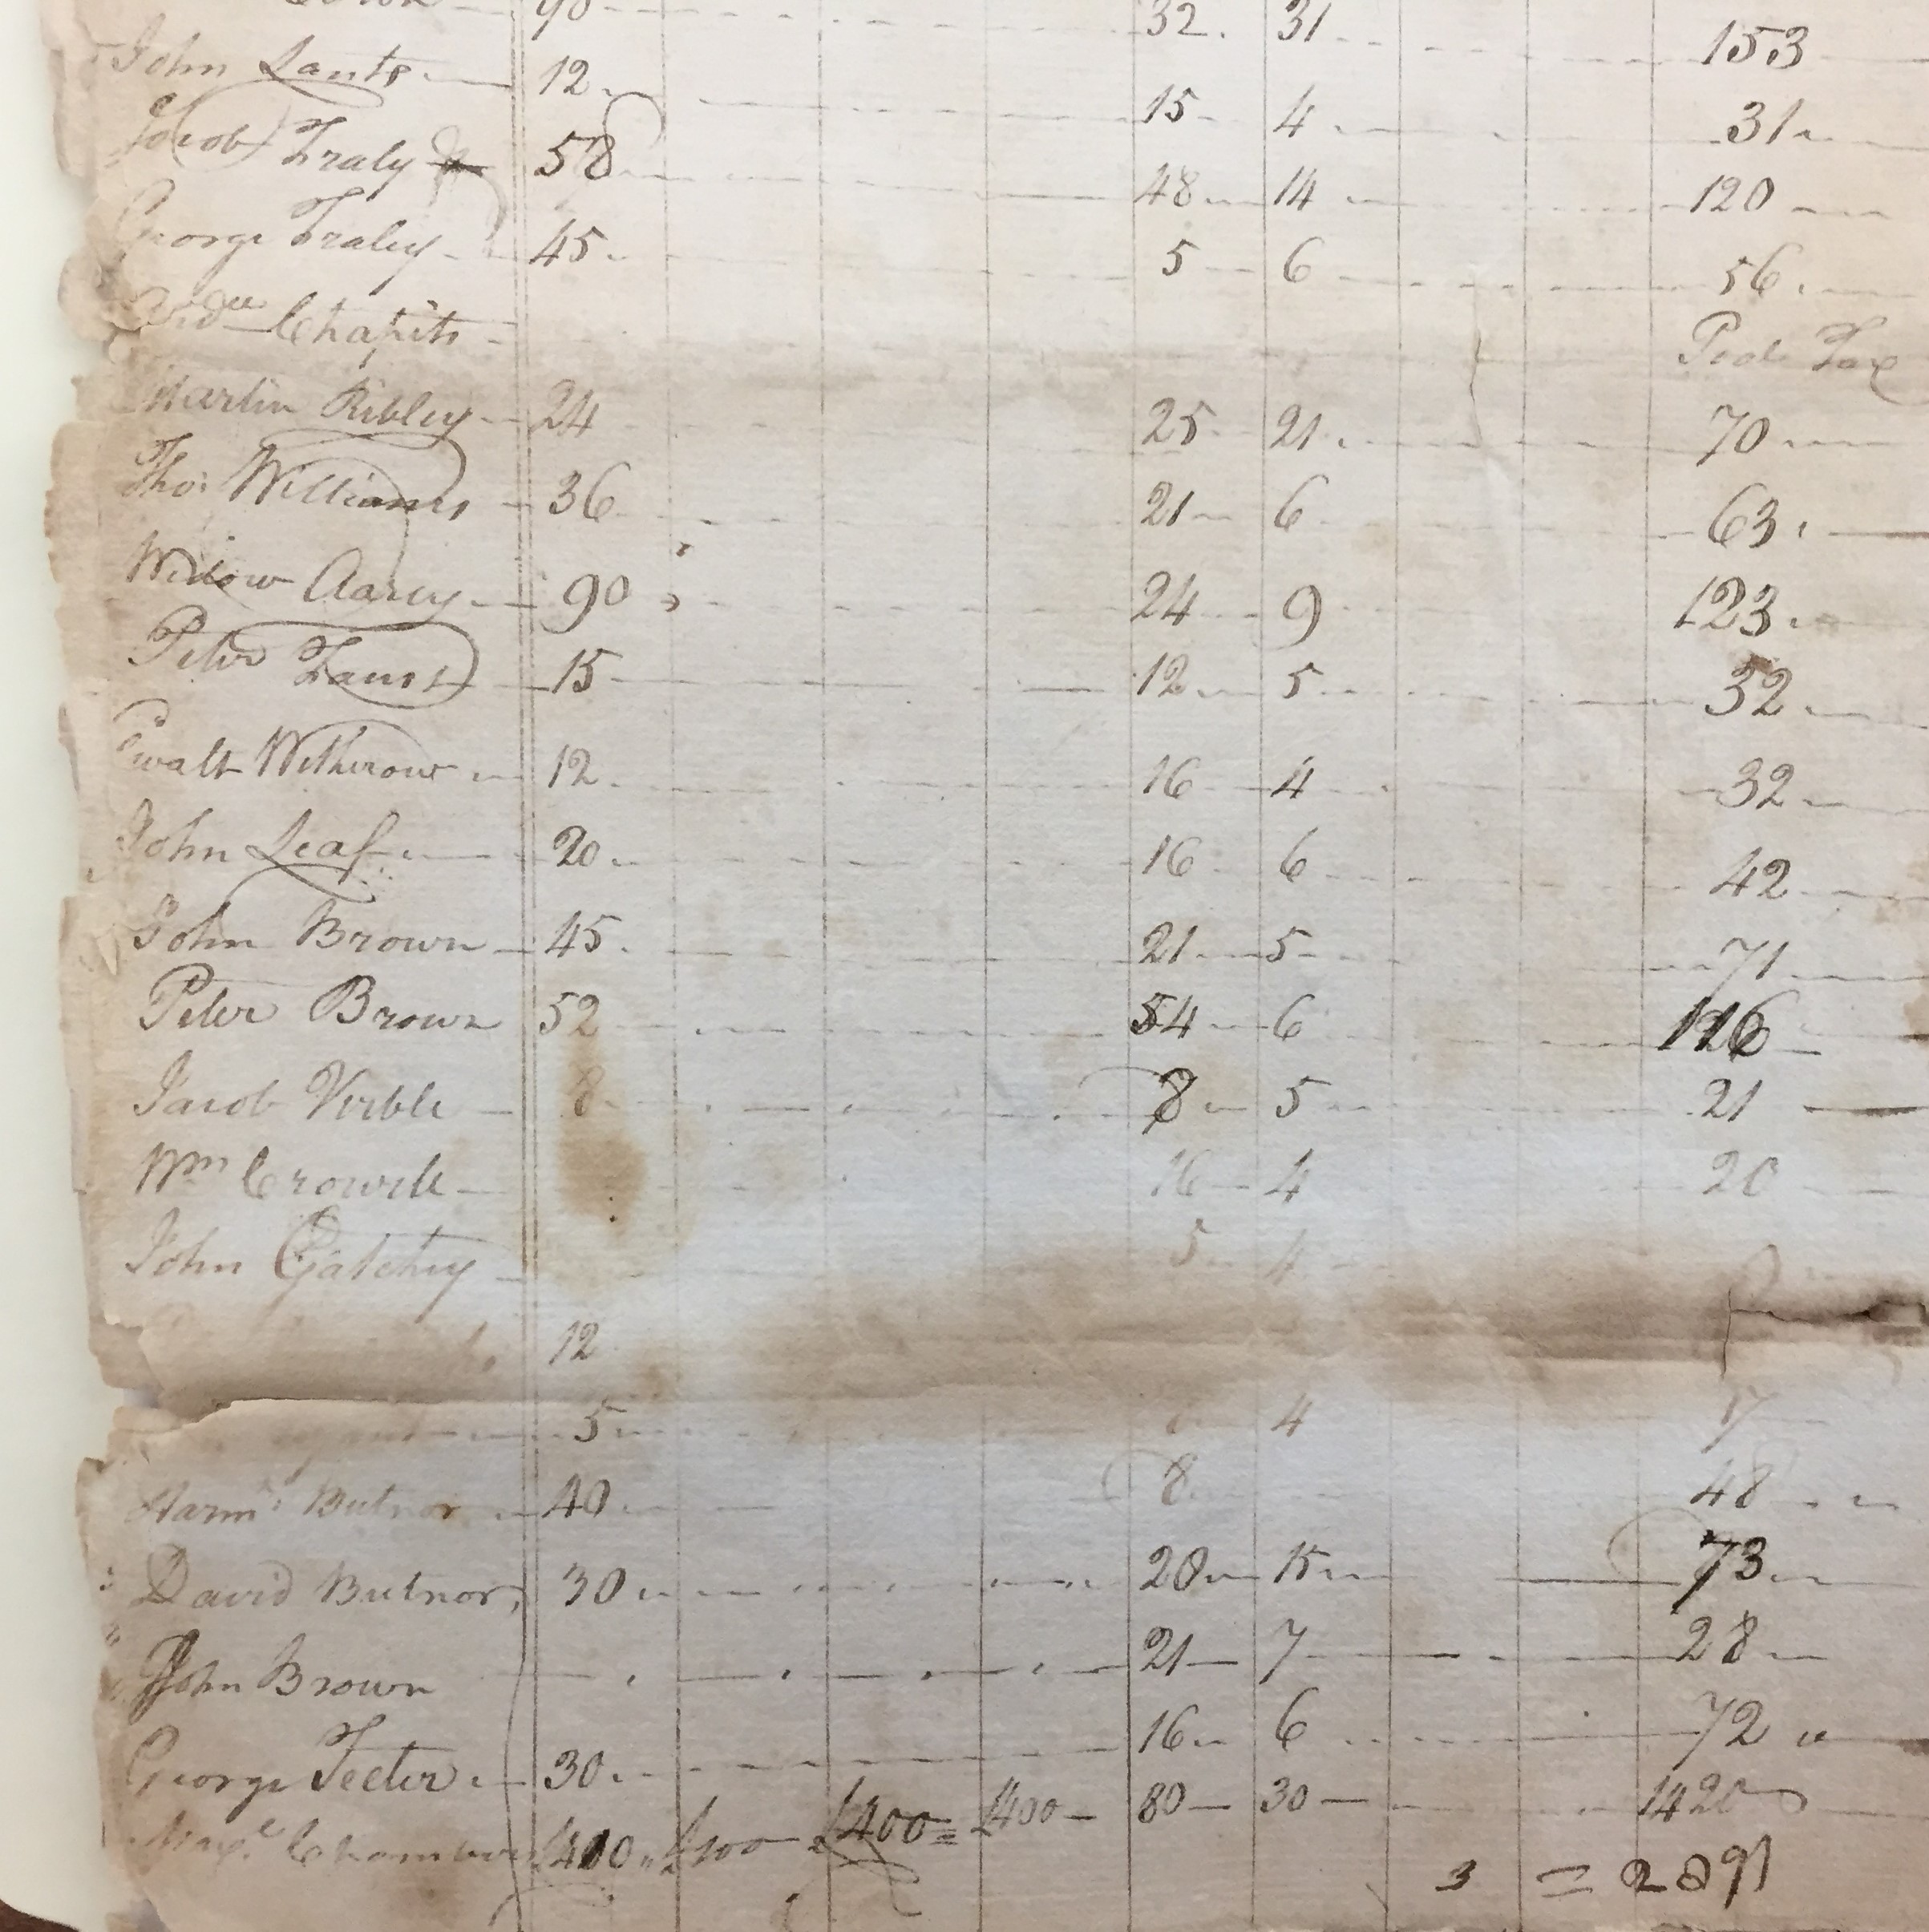 90 32. 31 153
John Lants 12 15 4 31
Jacob Fraly 58 48 14 120
George Fraley 45 5 6 56
Chapits Poole Tax
Martin Ribley 24 25 21 70
Thos Williams 36 21 6 63
Widow Aarey 90 24 9 123
Peter 15 12 5 32
Ewalt Witherow 12 16 4 32
John Leaf 20 16 6 42
John Brown 45 21 5 71
Peter Brown 52 54 6
Jacob Verble 8 8 5 21
Wm Crowell 16 4 20
John Gatchey 5 4
12
5 4 17
Harmn Butnor 40 8 48
David Butnor 30 28 15 73
John Brown 21 7 28
George Teeter 30 16 6 72
Maxl Chambers £400 £100 £400 £400 80 30 1420
3 = 2891